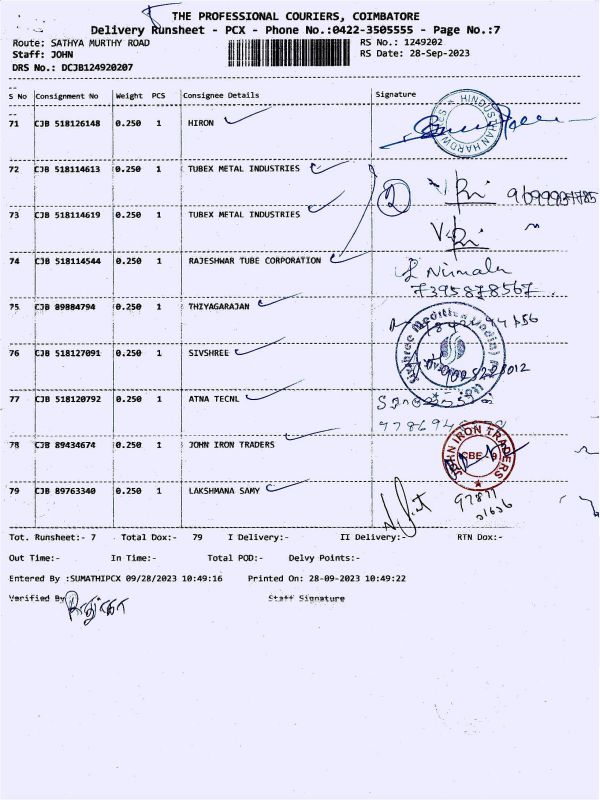 THE PROFESSIONAL COURIERS, COIMBATORE
Delivery Runsheet - PCX - Phone No.:0422-3505555 - Page No.:7
Route: SATHYA MURTHY ROAD RS No.: 1249202
Staff: JOHN RS Date: 28-Sep-2023
DRS No.: DCJB124920207
S No Consignment No Weight PCS Consignee Details Signature
71 CJB 518126148 0.250 1 HIRON
HINDUSTHAN HARDWARES
72 CJB 518114613 0.250 1 TUBEX METAL INDUSTRIES
2
73 CJB 518114619 0.250 1 TUBEX METAL INDUSTRIES
74 CJB 518114544 0.250 1 RAJESHWAR TUBE CORPORATION
Nirmala
7395878567
75 CJB 89884794 0.250 1 THIYAGARAJAN
76 CJB 518127091 0.250 1 SIVSHREE
77 CJB 518120792 0.250 1 ATNA TECNL
78 CJB 89434674 0.250 1 JOHN IRON TRADERS
JOHN IRON TRADERS
CBE - 9
79 CJB 89763340 0.250 1 LAKSHMANA SAMY
Tot. Runsheet:- 7 Total Dox:- 79 I Delivery:- II Delivery:- RTN Dox:-
Out Time:- In Time:- Total POD:- Delvy Points:-
Entered By :SUMATHIPCX 09/28/2023 10:49:16 Printed On: 28-09-2023 10:49:22
Verified By Staff Signature